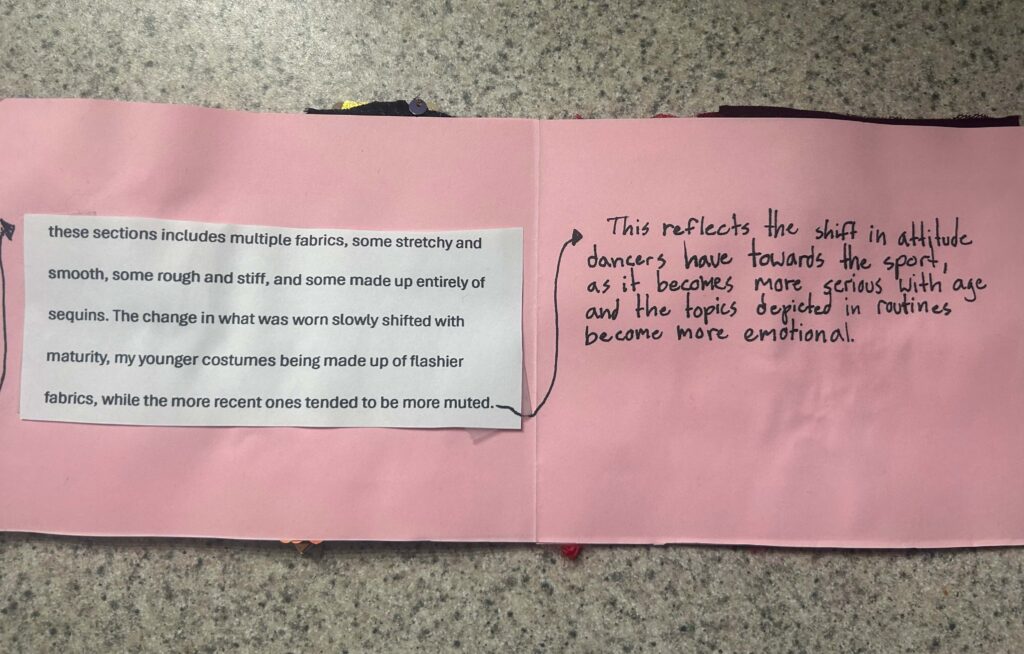 these sections includes multiple fabrics, some stretchy and
smooth, some rough and stiff, and some made up entirely of
sequins. The change in what was worn slowly shifted with
maturity, my younger costumes being made up of flashier
fabrics, while the more recent ones tended to be more muted.
This reflects the shift in attitude
dancers have towards the sport,
as it becomes more serious with age
and the topics depicted in routines
become more emotional.